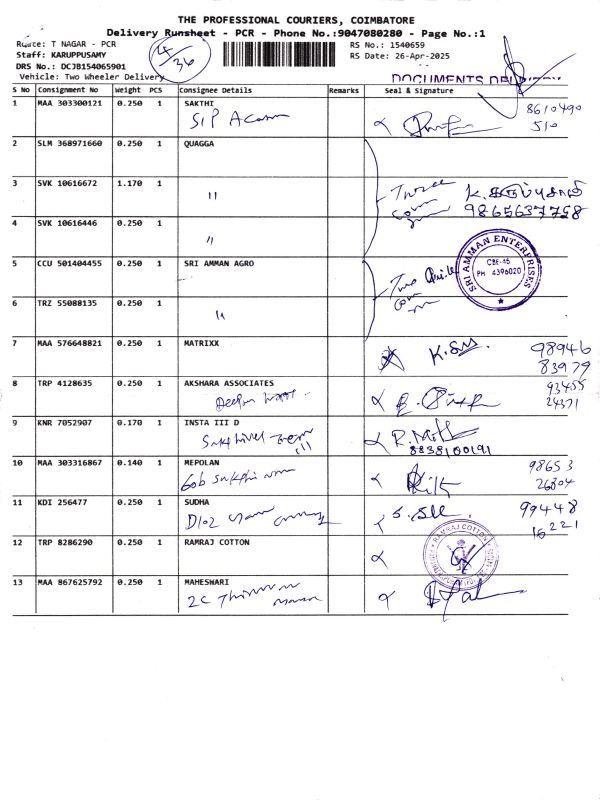 THE PROFESSIONAL COURIERS, COIMBATORE
Delivery Runsheet - PCR - Phone No.:9047080280 - Page No.:1
Route: T NAGAR - PCR
4/36
RS No.: 1540659
Staff: KARUPPUSAMY
RS Date: 26-Apr-2025
DRS No.: DCJB154065901
Vehicle: Two Wheeler Delivery
DOCUMENTS
S No Consignment No Weight PCS Consignee Details Remarks Seal & Signature
1 MAA 303300121 0.250 1 SAKTHI 8610490
510
2 SLM 368971660 0.250 1 QUAGGA
3 SVK 10616672 1.170 1 Three
" 9865637758
4 SVK 10616446 0.250 1
"
SRI AMMAN ENTERPRISES
CBE-45
PH 4396020
5 CCU 501404455 0.250 1 SRI AMMAN AGRO
Two
6 TRZ 55088135 0.250 1
"
7 MAA 576648821 0.250 1 MATRIXX 98946
83979
8 TRP 4128635 0.250 1 AKSHARA ASSOCIATES 93455
24371
9 KNR 7052907 0.170 1 INSTA III D
8838100191
10 MAA 303316867 0.140 1 MEPOLAN 98653
26804
11 KDI 256477 0.250 1 SUDHA 99448
D102 16221
12 TRP 8286290 0.250 1 RAMRAJ COTTON
RAMRAJ COTTON
13 MAA 867625792 0.250 1 MAHESWARI
2C